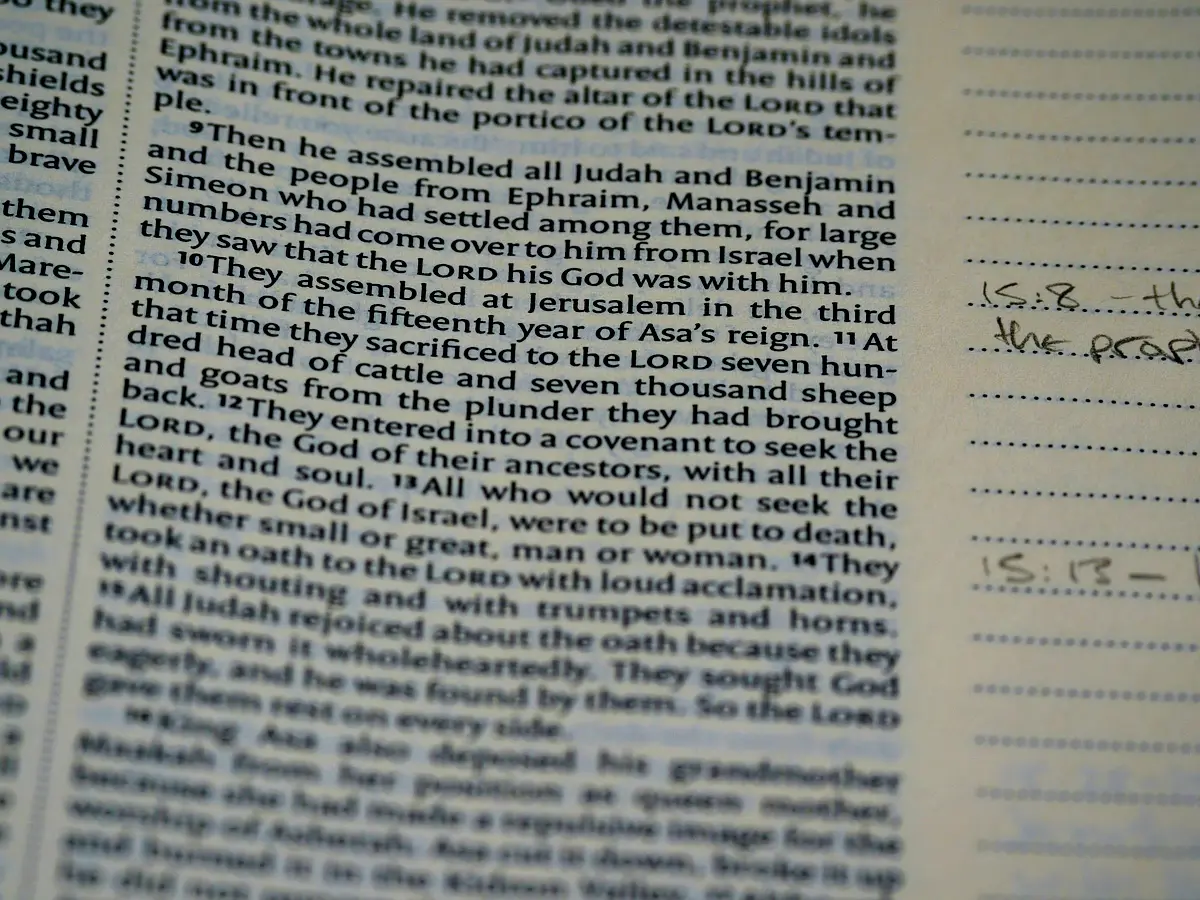 they
ousand
shields
eighty
small
brave
them
s and
Mare-
took
thah
and
the
our
we
are
nst
ore
nd
a
the prophet, he
He removed the detestable idols
from the whole land of Judah and Benjamin and
from the towns he had captured in the hills of
Ephraim. He repaired the altar of the LORD that
was in front of the portico of the LORD's tem-
ple.
9 Then he assembled all Judah and Benjamin
and the people from Ephraim, Manasseh and
Simeon who had settled among them, for large
numbers had come over to him from Israel when
they saw that the LORD his God was with him.
10 They assembled at Jerusalem in the third
month of the fifteenth year of Asa's reign. 11 At
that time they sacrificed to the LORD seven hun-
dred head of cattle and seven thousand sheep
and goats from the plunder they had brought
back. 12 They entered into a covenant to seek the
LORD, the God of their ancestors, with all their
heart and soul. 13 All who would not seek the
LORD, the God of Israel, were to be put to death,
whether small or great, man or woman. 14 They
took an oath to the LORD with loud acclamation,
with shouting and with trumpets and horns.
15 All Judah rejoiced about the oath because they
had sworn it wholeheartedly. They sought God
eagerly, and he was found by them. So the LORD
gave them rest on every side.
16 King Asa also deposed his grandmother
Maakah from her position as queen mother,
because she had made a repulsive image for the
worship of Asherah. Asa cut it down, broke it up
and burned it in the Kidron Valley.
he did not
15:8 - th
the prop
15:13 -